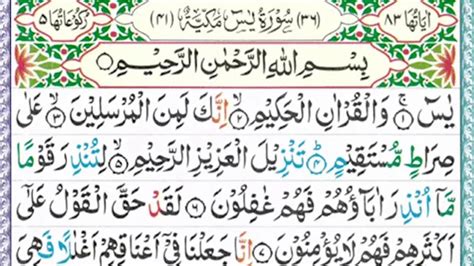 اٰيَاتُهَا ٨٣ (٣٦) سُوْرَةُ يٰسٓ مَكِّيَّةٌ (٤١) رُكُوْعَاتُهَا ٥
بِسْمِ اللّٰهِ الرَّحْمٰنِ الرَّحِيْمِ
يٰسٓ ۝١ وَالْقُرْاٰنِ الْحَكِيْمِ ۝٢ اِنَّكَ لَمِنَ الْمُرْسَلِيْنَ ۝٣ عَلٰى
صِرَاطٍ مُّسْتَقِيْمٍ ۝٤ تَنْزِيْلَ الْعَزِيْزِ الرَّحِيْمِ ۝٥ لِتُنْذِرَ قَوْمًا
مَّاۤ اُنْذِرَ اٰبَآؤُهُمْ فَهُمْ غٰفِلُوْنَ ۝٦ لَقَدْ حَقَّ الْقَوْلُ عَلٰۤى
اَكْثَرِهِمْ فَهُمْ لَا يُؤْمِنُوْنَ ۝٧ اِنَّا جَعَلْنَا فِيْۤ اَعْنَاقِهِمْ اَغْلٰلًا فَهِيَ